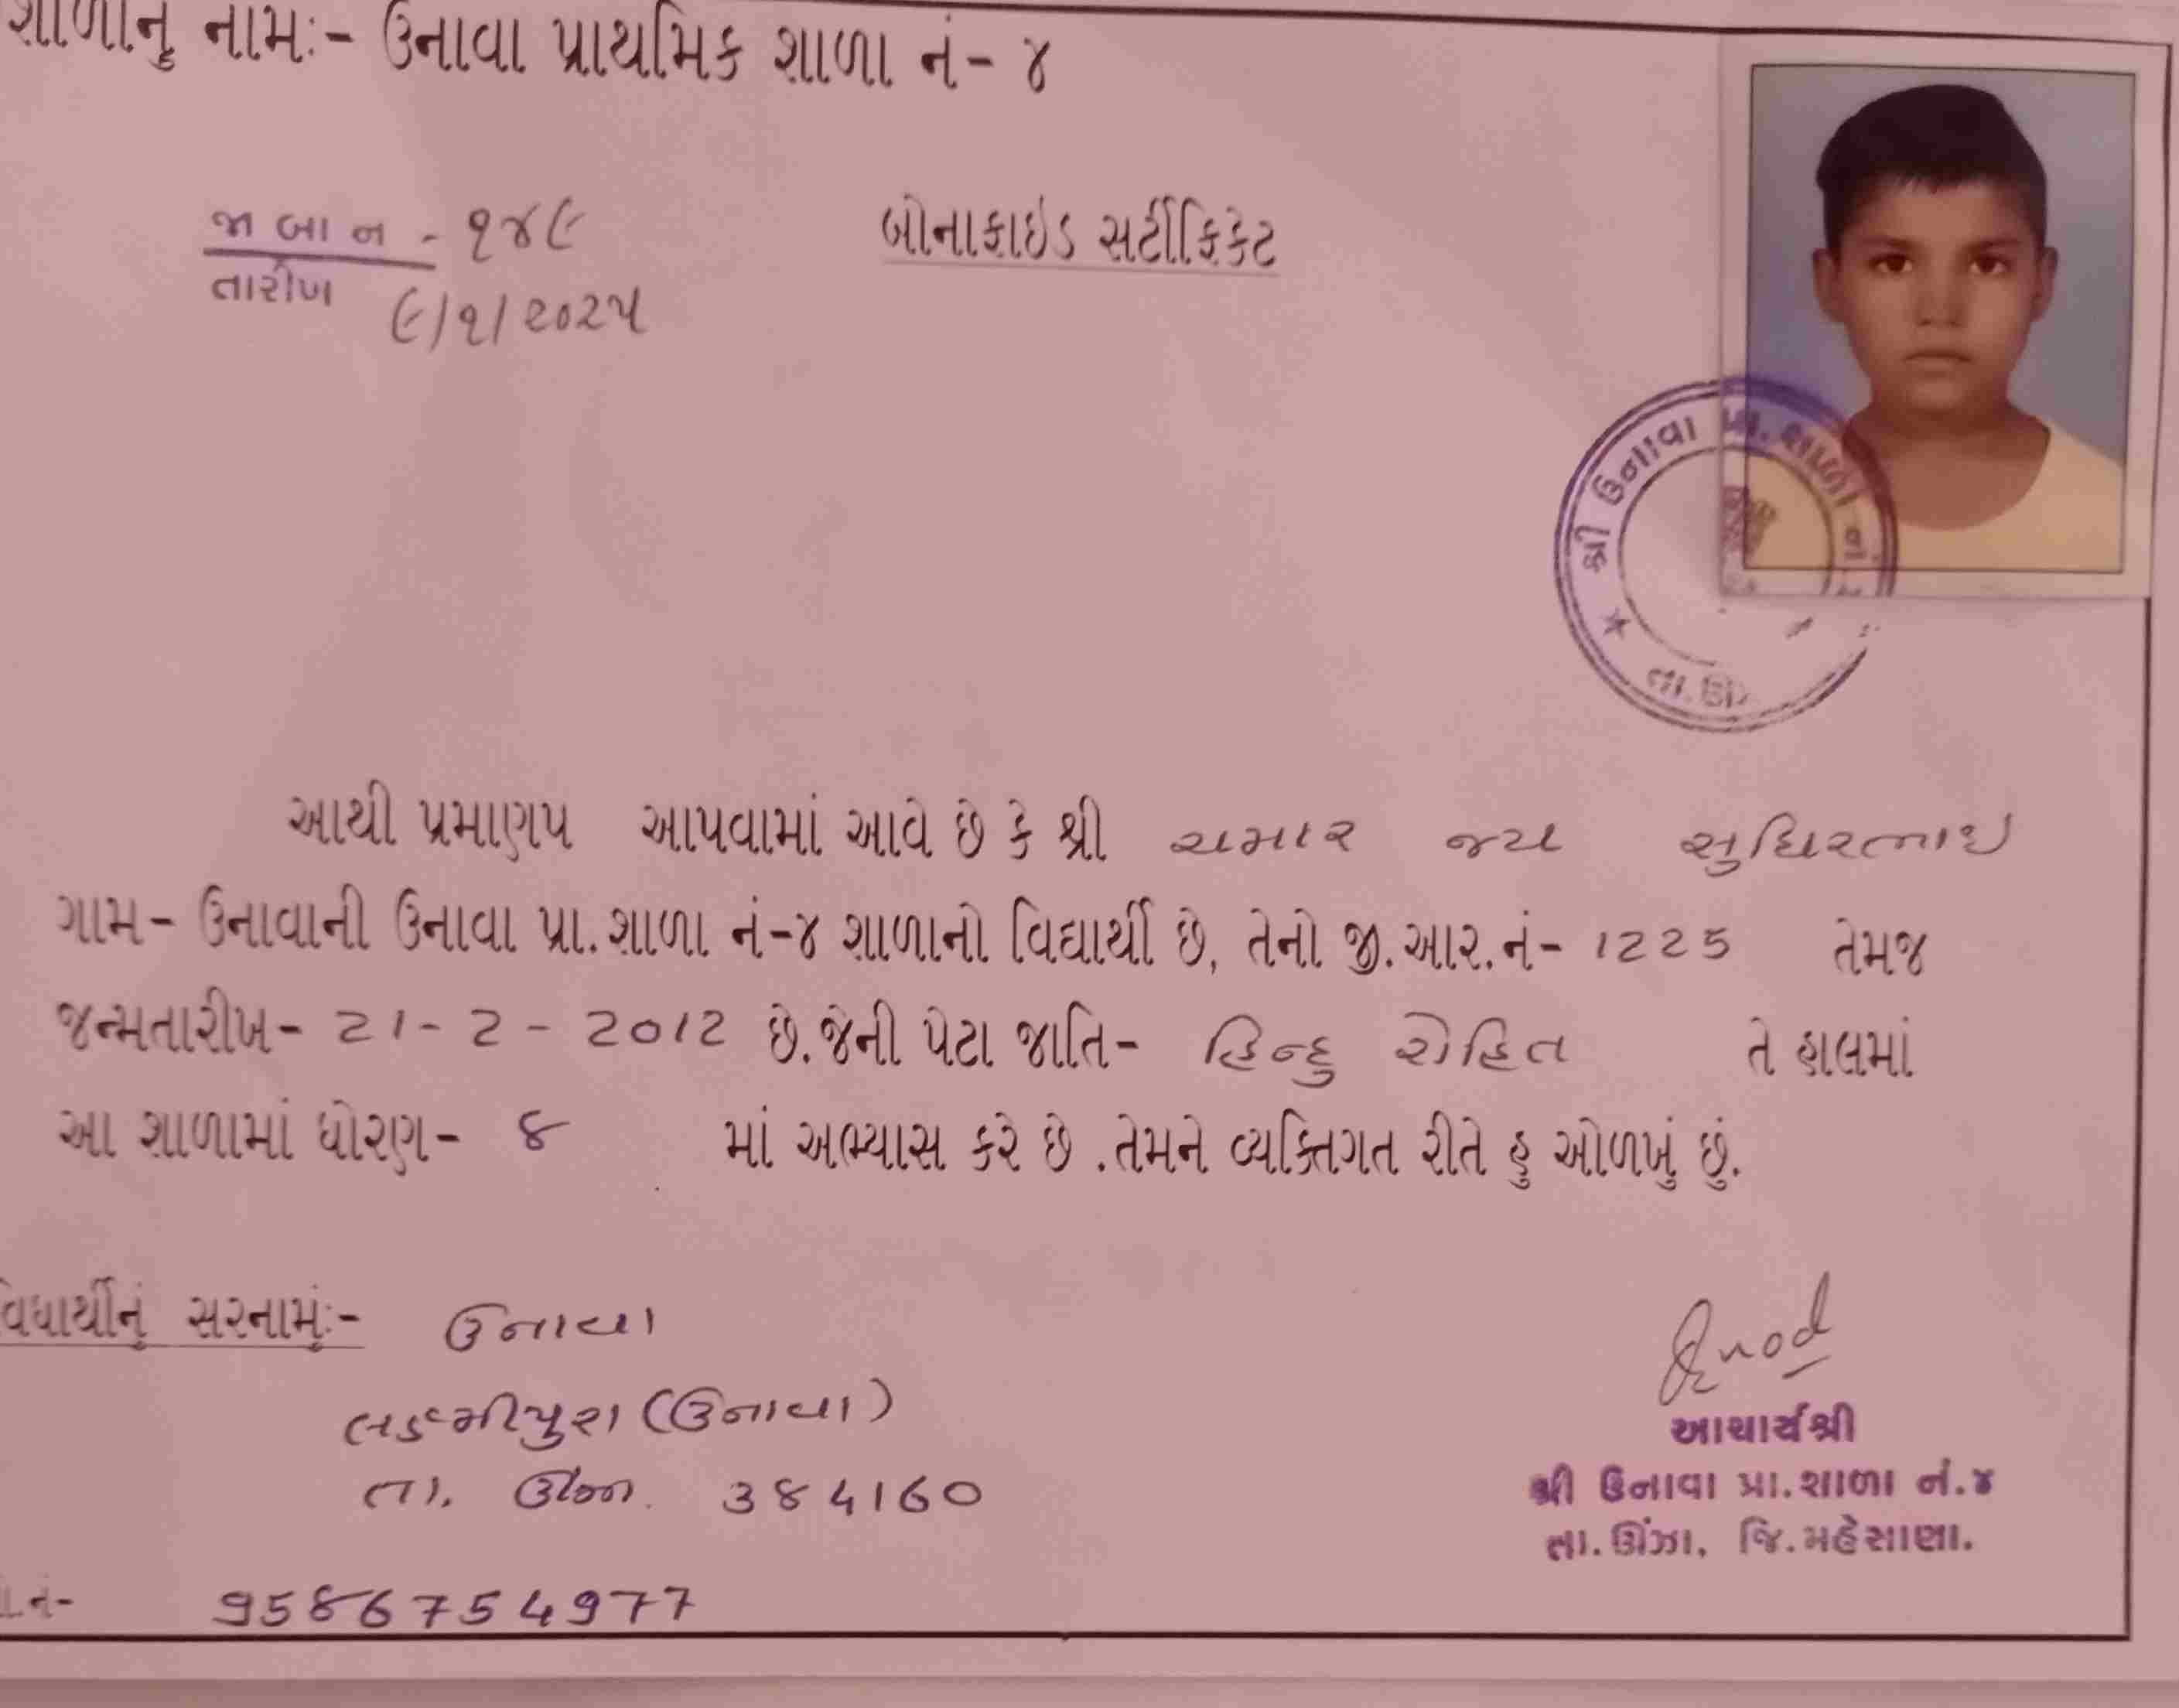 શાળાનું નામઃ- ઉનાવા પ્રાથમિક શાળા નં- ૪
જા બા ન - ૧૪૯
તારીખ ૯/૧/૨૦૨૫
બોનાફાઇડ સર્ટીફિકેટ
શ્રી ઉનાવા પ્રા. શાળા નં.
આથી પ્રમાણપ આપવામાં આવે છે કે શ્રી ચમાર જય સુધિરભાઇ
ગામ- ઉનાવાની ઉનાવા પ્રા.શાળા નં-૪ શાળાનો વિદ્યાર્થી છે, તેનો જી.આર.નં- 1225 તેમજ
જન્મતારીખ- 21-2-2012 છે.જેની પેટા જાતિ- હિન્દુ રોહિત તે હાલમાં
આ શાળામાં ધોરણ- ૪ માં અભ્યાસ કરે છે .તેમને વ્યક્તિગત રીતે હુ ઓળખું છું.
વિધાર્થીનું સરનામુંઃ- ઉનાવા
લક્ષ્મીપુરા (ઉનાવા)
તા. ઊંઝા. 384160
નં- 9586754977
આચાર્યશ્રી
શ્રી ઉનાવા પ્રા.શાળા નં.૪
તા.ઊંઝા, જિ.મહેસાણા.